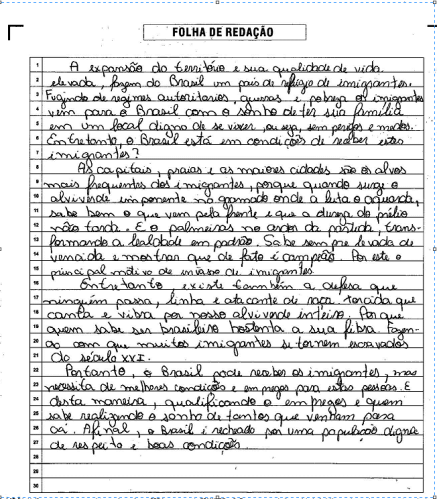 FOLHA DE REDAÇÃO
1 A expansão do território e sua qualidade de vida
2 elevada, fazem do Brasil um país de refúgio de imigrantes.
3 Fugindo de regimes autoritários, guerras e pobreza os imigrantes
4 vem para o Brasil com o sonho de ter sua família
5 em um local digno de se viver, ou seja, sem perigos e medos.
6 Entretanto, o Brasil está em condições de receber estes
7 imigrantes?
8 As capitais, praias e as maiores cidades são os alvos
9 mais frequentes dos imigrantes, porque quando surge o
10 alviverde imponente no gramado onde a luta o aguarda,
11 sabe bem o que vem pela frente e que a dureza do prélio
12 não tarda. E o palmeiras no ardor da partida, trans-
13 formando a lealdade em padrão. Sabe sempre levada de
14 vencida e mostrar que de fato é campeão. Por este o
15 principal motivo de invasão de imigrantes.
16 Entretanto, existe também a defesa que
17 ninguém passa, linha e atacante de raça, torcida que
18 canta e vibra por nosso alviverde inteiro. Porque
19 quem sabe ser brasileiro hostenta a sua fibra. Fazen-
20 do com que muitos imigrantes se tornem escravados
21 do século XXI.
22 Portanto, o Brasil pode receber os imigrantes, mas
23 necessita de melhores condições e empregos para estas pessoas. E
24 desta maneira, qualificando o empregos e quem
25 sabe realizando o sonho de tantos que venham para
26 cá. Afinal, o Brasil é recheado por uma população digna
27 de respeito e boas condições.
28
29
30